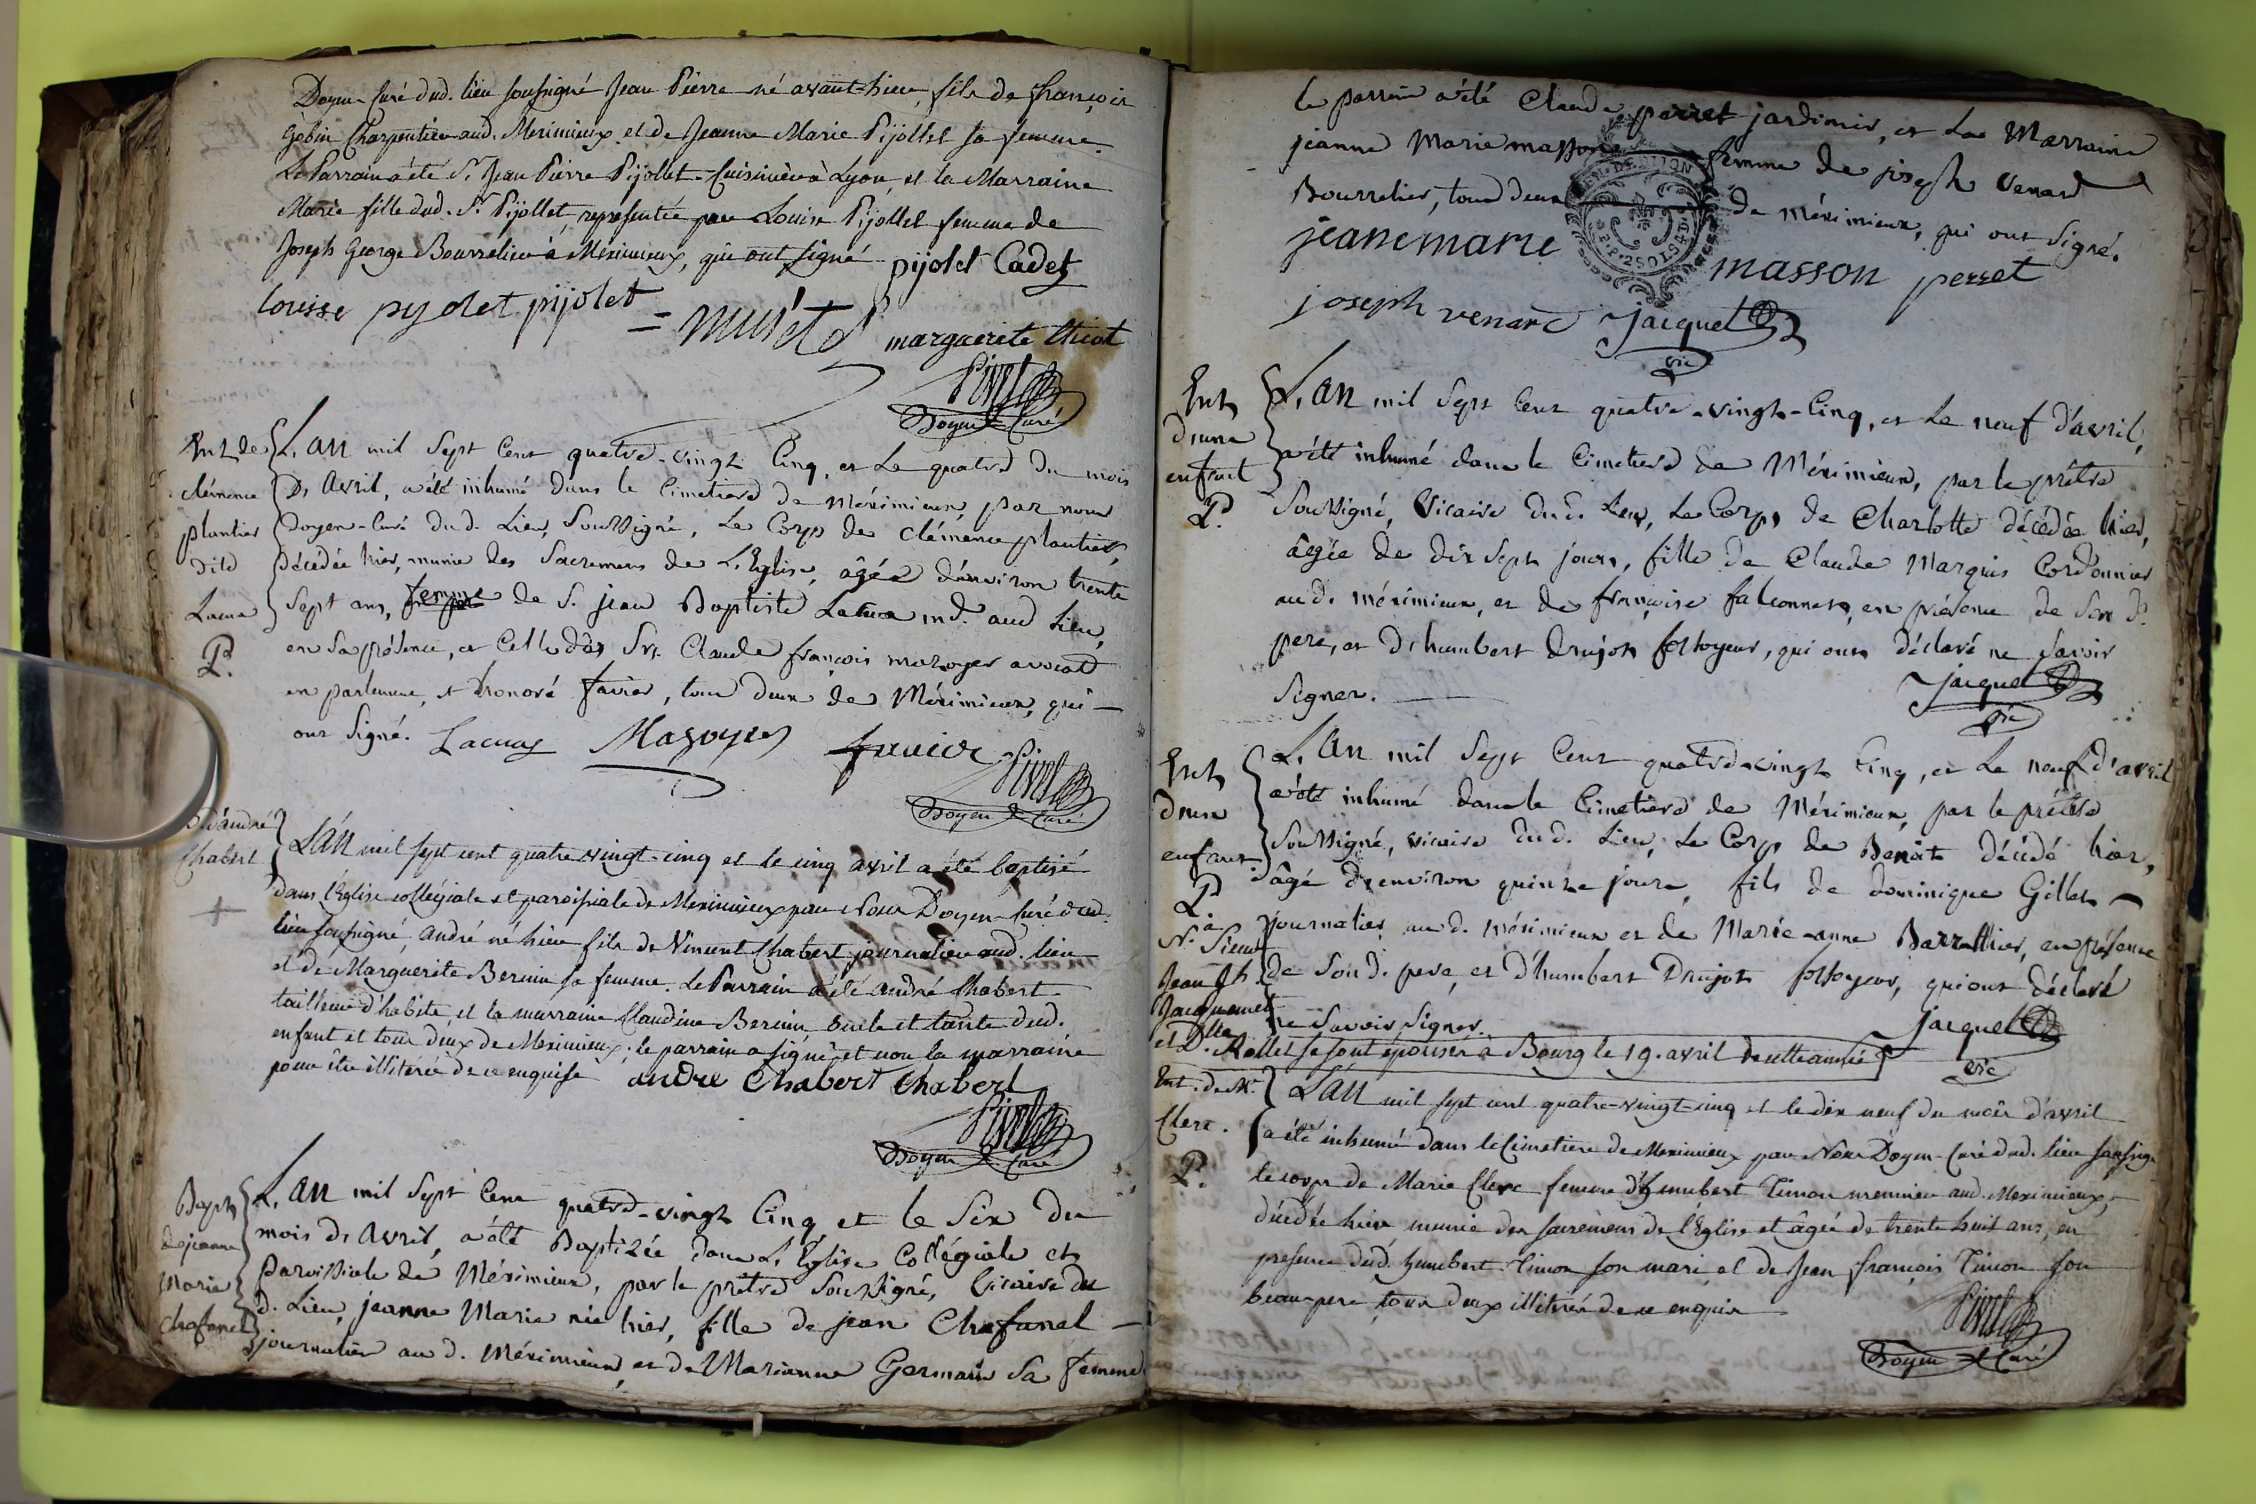 Doyen-Curé dud. lieu soussigné Jean Pierre né avant-hier, fils de françois
Gobin Charpentier aud. Meximieux et de Jeanne Marie Pijollet sa femme.
Le Parrain a été Sr. Jean Pierre Pijollet Cuisinier à Lyon, et la Marraine
Marie fille dud. Sr. Pijollet, représentée par Louise Pijollet femme de
Joseph George Bourrelier à Meximieux, qui ont signé pijolet Cadet
louisse pijolet pijolet
marguerite
Pivet
Doyen Curé
Ent. de
clémence
plantier
dite
Lacua
P.
L'an mil sept cent quatre-vingt cinq, et le quatre du mois
De avril, a été inhumé dans le cimetiere de méximieux par nous
Doyen-Curé dud. Lieu, soussigné, Le Corps de clémence plantier,
décédée hier, munie des sacremens de L'Eglise, âgée d'environ trente
sept ans, femme de S. jean Baptiste Lacua md. aud Lieu,
en sa présence, et celle des Srs. Claude françois mazoyer avocat
en parlement, et honoré favier, tous deux de Méximieux, qui
ont signé. Lacua Mazoyer favier
Pivet
Doyen Curé
B. d'andré
Chabert
+
L'an mil sept cent quatre vingt-cinq et le cinq avril a été baptisé
dans l'Eglise collégiale et paroissiale de Meximieux par Nous Doyen-Curé dud.
lieu soussigné, andré né hier fils de Vincent Chabert journalier aud. lieu
et de Marguerite Bernin sa femme. Le Parrain a été andré Chabert
tailleur d'habits, et la marraine Claudine Bernin oncle et tante dud.
enfant et tous deux de Meximieux; le parrain a signé et non la marraine
pour être illitérée de ce enquise andre Chabert Chabert
Pivet
Doyen Curé
Bapt.
de jeanne
marie
Chafanel
L'an mil sept cent quatre-vingt cinq et le six du
mois de avril, a été Baptizée dans L'Eglise Collégiale et
paroissiale de Méximieux, par le prêtre soussigné, vicaire du
d. Lieu, jeanne Marie née hier, fille de jean Chafanel
journalier au d. Méximieux, et de Marianne Germain sa femme
le parrain a été Claude perret jardinier, et La Marraine
jeanne Marie masson femme de joseph Venard
Bourrelier, tous deux de méximieux, qui ont signé.
jeanemarie masson perret
joseph venard Jacquet
vic
Ent.
d'une
enfant
P.
L'an mil sept cent quatre-vingt-cinq, et Le neuf d'avril,
a été inhumé dans le cimetiere de Méximieux, par le prêtre
soussigné, vicaire dud. Lieu, Le Corps de Charlotte décédée hier,
âgée de dix sept jours, fille de Claude Marquis Cordonnier
au d. méximieux, et de françoise falconnet, en présence de son d.
pere, et D'humbert Drujon fossoyeur, qui ont déclaré ne savoir
signer.
Jacquet
vic
Ent.
d'un
enfant
P.
L'an mil sept cent quatre-vingt cinq, et Le neuf d'avril
a été inhumé dans le cimetiere de Méximieux, par le prêtre
soussigné, vicaire dud. Lieu, Le Corps de Benoit décédé hier,
âgé d'environ quinze jours, fils de dominique Gillet
journalier au d. méximieux et de Marie-anne Barrallier, en présence
de son d. pere, et D'humbert Drujon fossoyeur, qui ont déclaré
ne savoir signer.
Jacquet
vic
Nta. Sieur
Jean Bt.
Jacquemet
et Dlle. Rollet se sont épousés à Bourg le 19. avril de cette année
Ent. de Me.
Clerc.
P.
L'an mil sept cent quatre-vingt-cinq et le dix neuf du mois d'avril
a été inhumé dans le Cimetiere de Meximieux par Nous Doyen-Curé dud. lieu soussigné
le corps de Marie Clerc femme d'humbert Timon menuisier aud. Meximieux,
décédée hier munie des sacremens de l'Eglise et âgée de trente huit ans, en
presence dud. humbert Timon son mari et de Jean françois Timon son
beau-pere, tous deux illitérés de ce enquis
Pivet
Doyen Curé